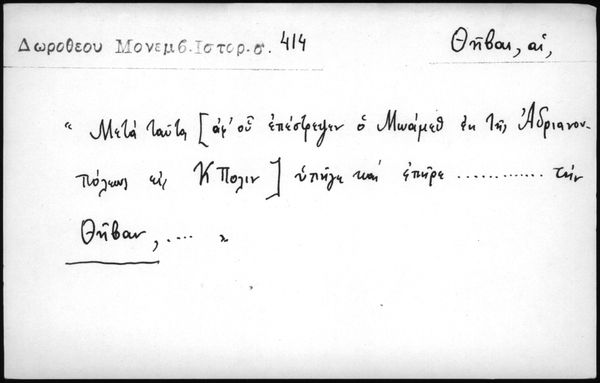 Δωροθεου Μονεμβ.Ιστορ.σ. 414 Θῆβαι, αἱ,
" Μετὰ ταῦτα [ἀφ' οὗ ἐπέστρεψεν ὁ Μωάμεθ ἐκ τῆς Ἀδριανου-
πόλεως εἰς ΚΠολιν] ὑπῆγε καὶ ἐπῆρε ............ τὴν
Θῆβαν, .... "